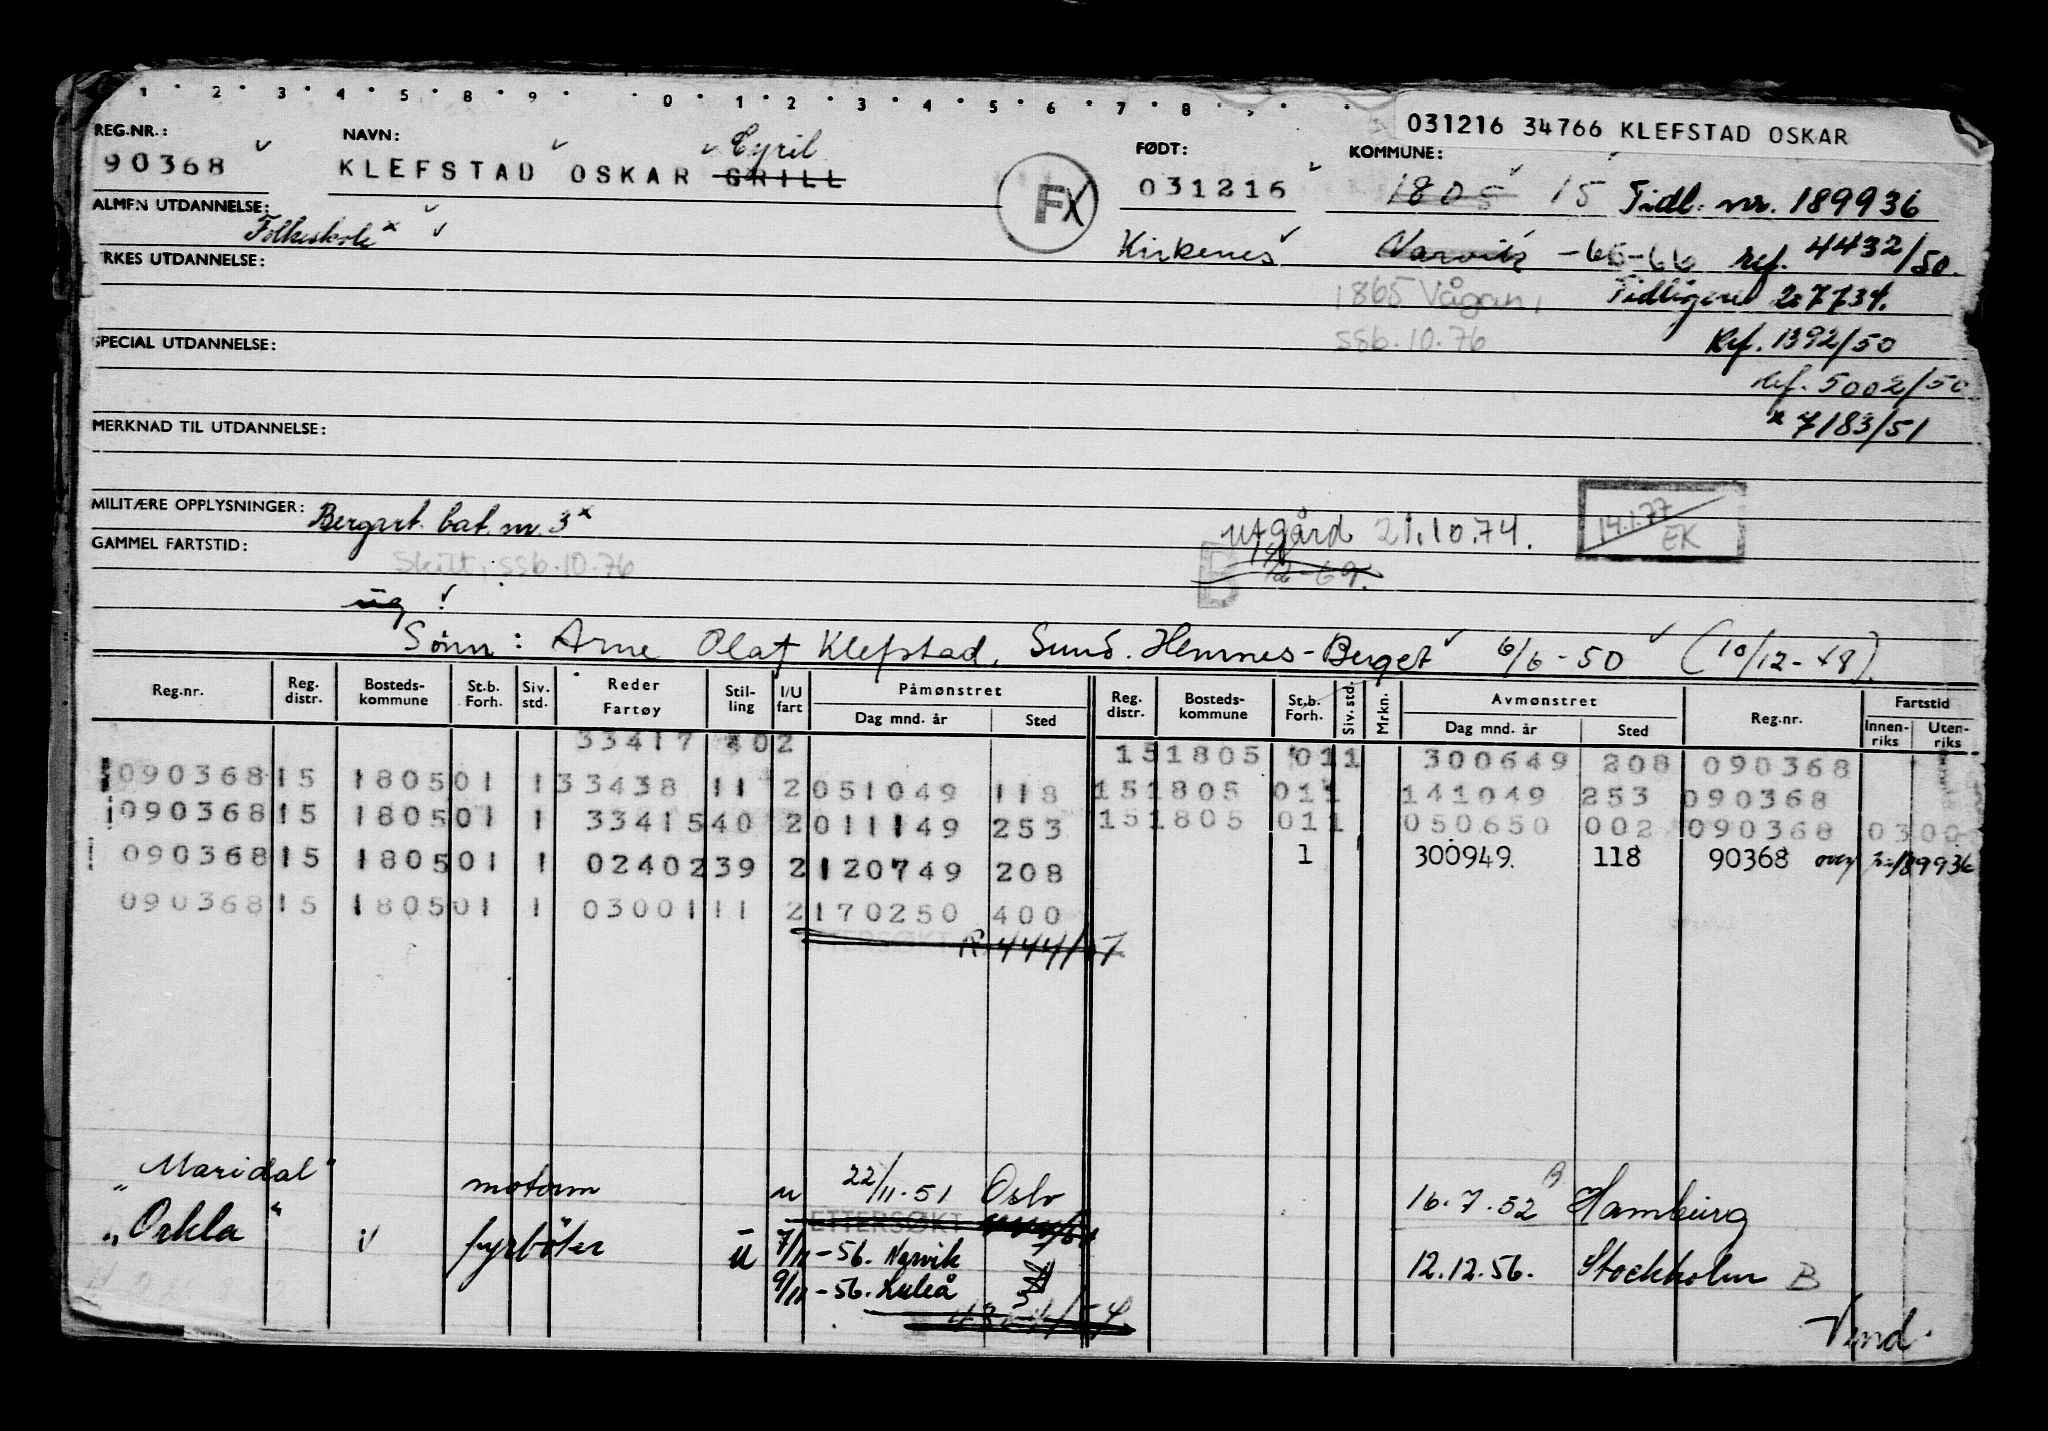 1 · 2 · 3 · 4 · 5 · 8 · 9 · · 0 · 1 · 2 · 3 · 4 · 5 · 6 · 7 · 8 ·
031216 34766 KLEFSTAD OSKAR
REG.NR.: NAVN: FØDT: KOMMUNE:
90368 KLEFSTAD OSKAR GRILL Cyril 031216 1805 15 Tidl. nr. 189936
FX
ALMEN UTDANNELSE: Folkeskole x Kirkenes Narvik -66-66 Ref. 4432/50.
YRKES UTDANNELSE:
1865 Vågan, Tidligere 27734.
ssb.10.76 Ref. 1392/50
SPECIAL UTDANNELSE:
Ref. 5002/50
x 7183/51
MERKNAD TIL UTDANNELSE:
MILITÆRE OPPLYSNINGER: Bergart. bat. nr. 3 x
utgård 21.10.74.
14.1.77 EK
GAMMEL FARTSTID:
Skilt, ssb.10.76
B
ug
Sønn: Arne Olaf Klefstad, Sund. Hemnes-Berget 6/6-50 (10/12-48).
Reg.nr. Reg. distr. Bosteds- kommune St.b. Forh. Siv. std. Reder Fartøy Stil- ling I/U fart Påmønstret Dag mnd. år Sted Reg. distr. Bosteds- kommune St.b. Forh. Siv. std. Mrkn. Avmønstret Dag mnd. år Sted Reg.nr. Fartstid Innen- riks Uten- riks
33417 402 151805 011 300649 208 090368
090368 15 1805 01 1 33438 11 2 051049 118 151805 011 141049 253 090368
090368 15 1805 01 1 33415 40 2 011149 253 151805 011 050650 002 090368 0300
090368 15 1805 01 1 02402 39 2 120749 208 1 300949. 118 90368 189936
090368 15 1805 01 1 03001 11 2 170250 400
ETTERSØKT
"Maridal" motorm u 22/11-51 Oslo 16.7.52 B Hamburg
ETTERSØKT
"Orkla" fyrbøter u 7/11-56. Narvik 12.12.56. Stockholm B
9/11-56. Luleå
Vend.